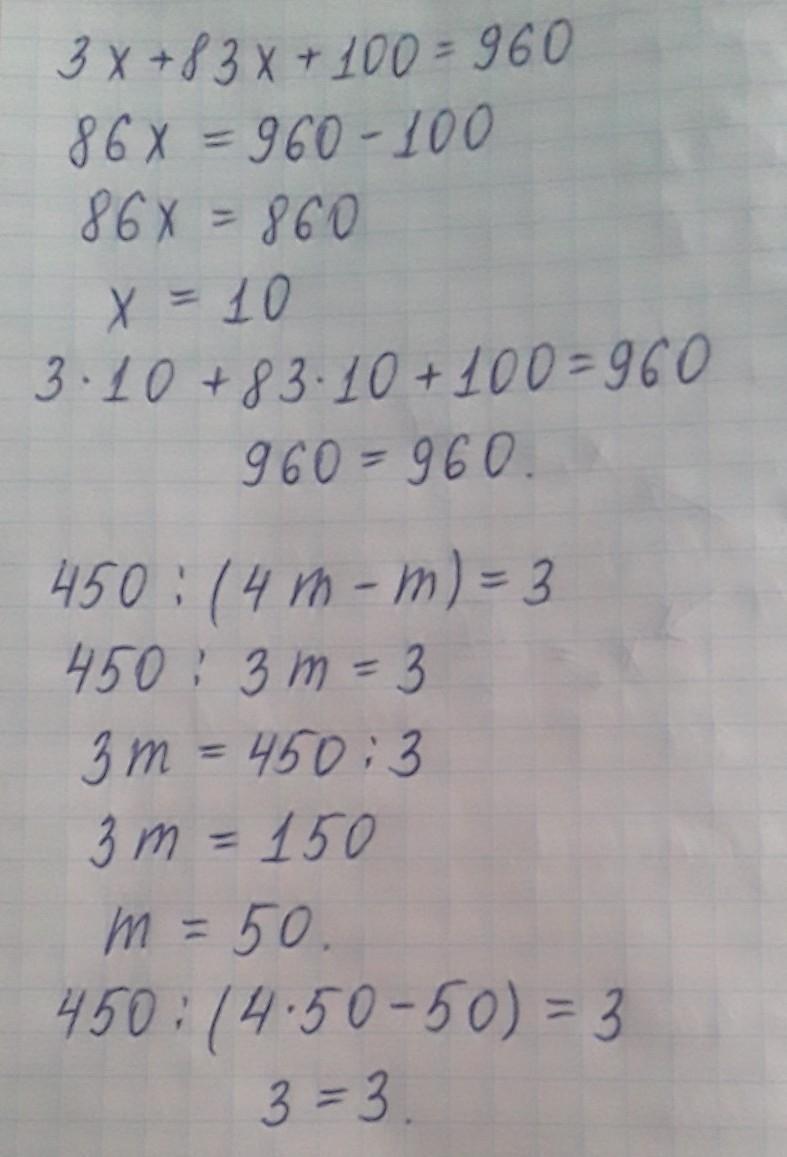 3x+83x+100=960
86x = 960-100
86x = 860
x = 10
3·10+83·10+100=960
960=960.
450:(4m-m)=3
450:3m=3
3m=450:3
3m=150
m=50.
450:(4·50-50)=3
3=3.